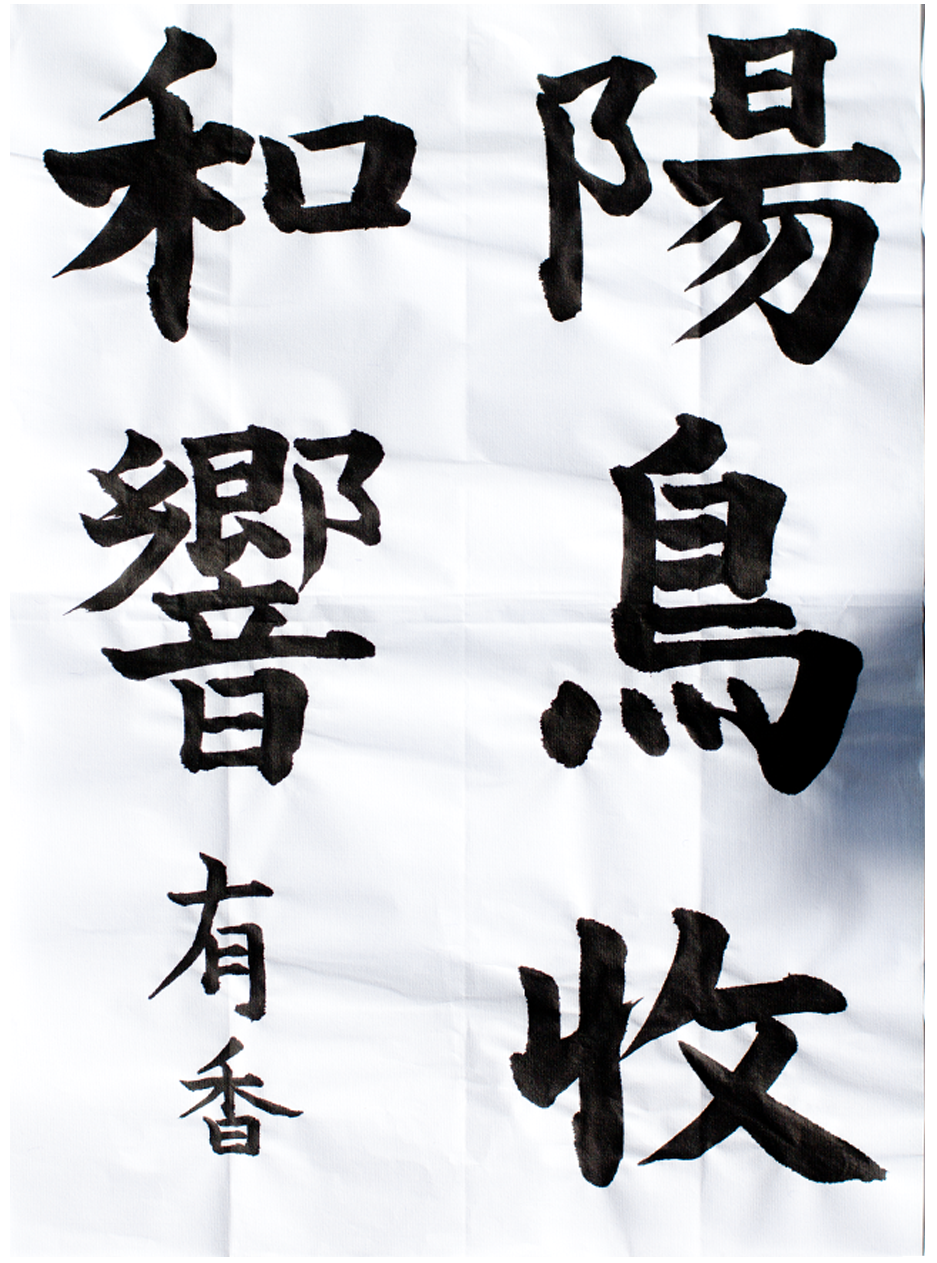 陽鳥收
和響有香